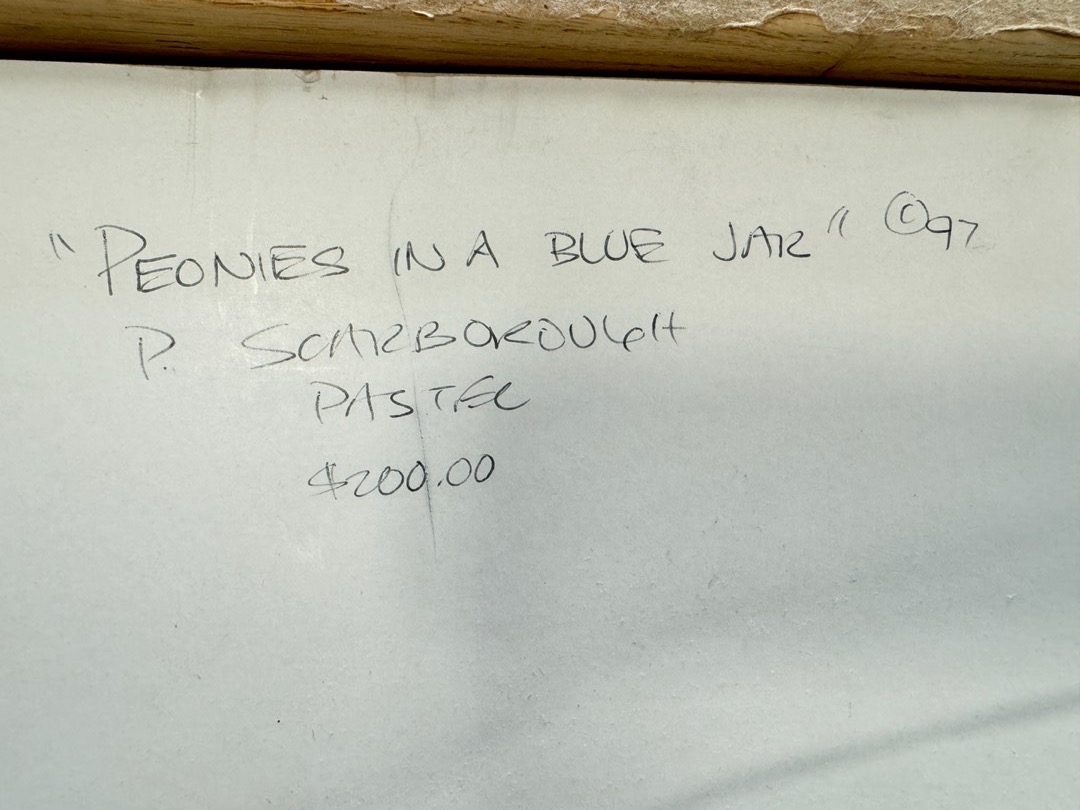 "PEONIES IN A BLUE JAR" ©97
P. SCARBOROUGH
PASTEL
$200.00